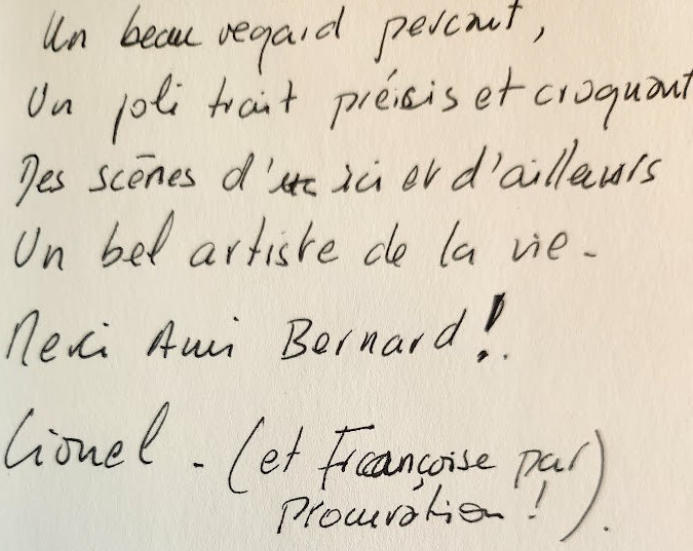 Un beau regard percant,
Un joli trait précis et croquant
Des scēnes d'ici et d'ailleurs
Un bel artiste de la vie -
Merci Ami Bernard !
Lionel - (et Françoise par
procuration !).